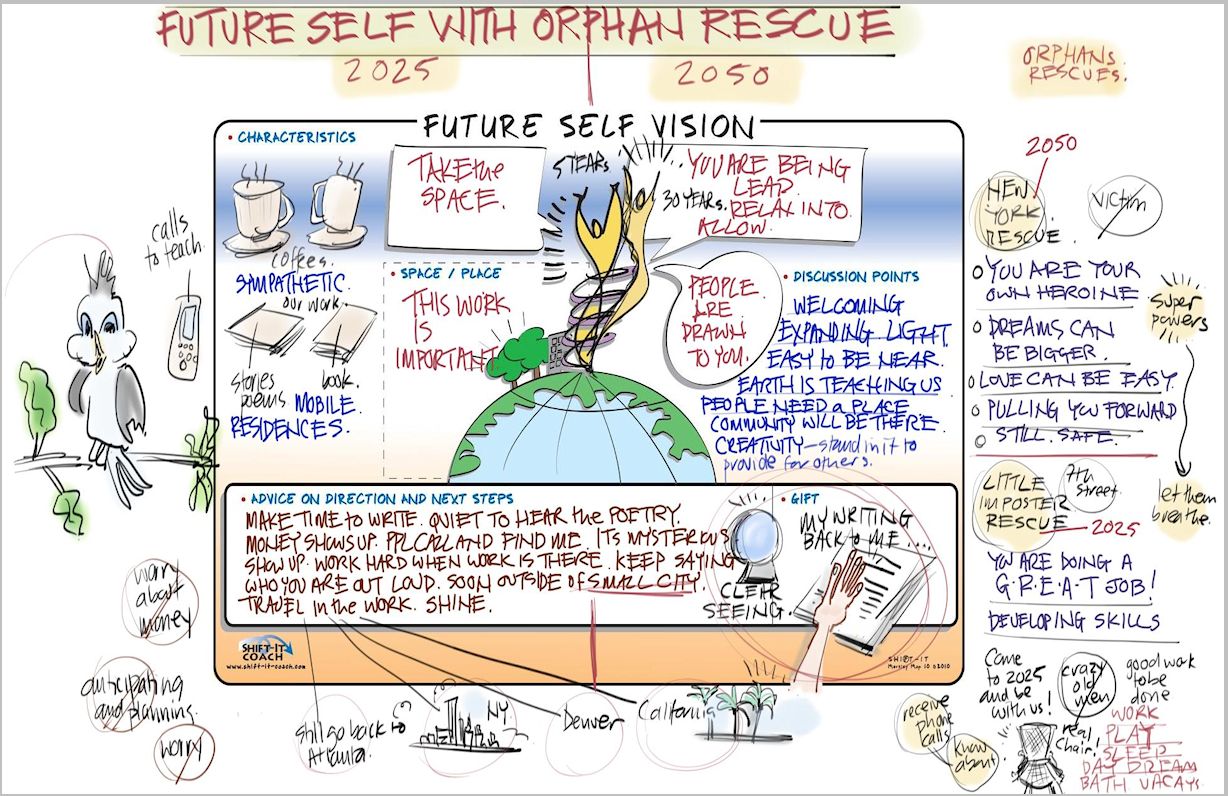 FUTURE SELF WITH ORPHAN RESCUE
2025
2050
ORPHANS
RESCUES.
FUTURE SELF VISION
• CHARACTERISTICS
coffees.
SYMPATHETIC
our work.
stories
poems
book.
MOBILE
RESIDENCES.
calls
to teach.
TAKE the
SPACE.
5 YEARS
30 YEARS.
YOU ARE BEING
LEAD.
RELAX INTO.
ALLOW.
• SPACE / PLACE
THIS WORK
IS
IMPORTANT
PEOPLE
ARE
DRAWN
TO YOU.
• DISCUSSION POINTS
WELCOMING
EXPANDING LIGHT
EASY to BE NEAR.
EARTH IS TEACHING US
PEOPLE NEED a PLACE
COMMUNITY WILL BE THERE.
CREATIVITY - stand in it to
provide for others.
• ADVICE ON DIRECTION AND NEXT STEPS
MAKE TIME to WRITE. QUIET TO HEAR the POETRY.
MONEY SHOWS UP. PPL CALL AND FIND ME. ITS MYSTERIOUS
SHOW UP. WORK HARD WHEN WORK IS THERE. KEEP SAYING
WHO YOU ARE OUT LOUD. SOON OUTSIDE OF SMALL CITY.
TRAVEL in the WORK. SHINE.
• GIFT
MY WRITING
BACK to ME....
CLEAR
SEEING.
SHIFT-IT
COACH
www.shift-it-coach.com
SHIFT-IT
2050
NEW
YORK
RESCUE.
victim
○ YOU ARE YOUR
OWN HEROINE
○ DREAMS CAN
BE BIGGER.
○ LOVE CAN BE EASY.
○ PULLING YOU FORWARD
○ STILL. SAFE.
super
powers
let them
breathe.
LITTLE
IMPOSTER
RESCUE
7th
Street.
2025
YOU ARE DOING A
G·R·E·A·T JOB!
DEVELOPING SKILLS
Come
to 2025
and be
with us!
crazy
old
men
real
chair!
good work
to be
done
WORK
PLAY
SLEEP
DAY DREAM
BATH VACAYS
worry
about
money
anticipating
and planning.
worry
still go back to
Atlanta.
NY.
Denver
California
receive
phone
calls
know
about